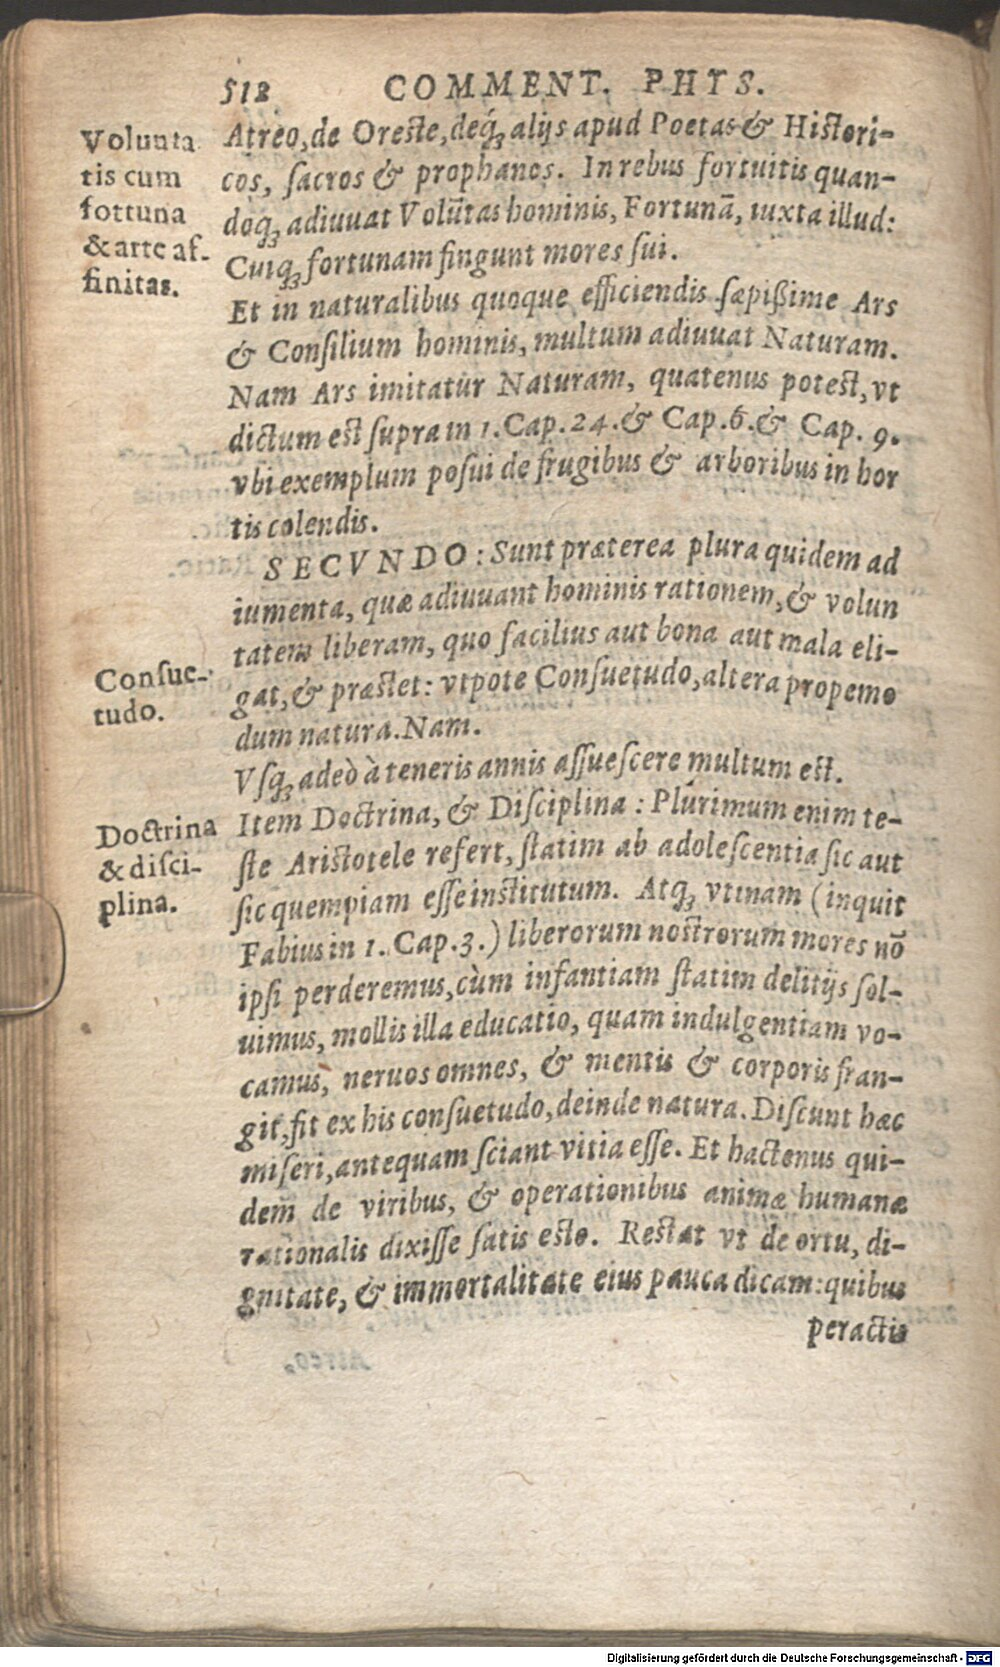 512 COMMENT. PHYS.
Atreo, de Oreste, deq́₃ alijs apud Poetas & Histori-
cos, sacros & prophanos. In rebus fortuitis quan-
doq₃ adiuuat Volūtas hominis, Fortunā, iuxta illud:
Cuiq₃ fortunam fingunt mores sui.
Et in naturalibus quoque efficiendis sæpißime Ars
& Consilium hominis, multum adiuuat Naturam.
Nam Ars imitatur Naturam, quatenus potest, vt
dictum est supra in 1. Cap. 24. & Cap. 6. & Cap. 9.
vbi exemplum posui de frugibus & arboribus in hor
tis colendis.
SECVNDO: Sunt præterea plura quidem ad
iumenta, quæ adiuuant hominis rationem, & volun
tatem liberam, quo facilius aut bona aut mala eli-
gat, & præstet: vtpote Consuetudo, altera propemo
dum natura. Nam.
Vsq₃ adeò à teneris annis assuescere multum est.
Item Doctrina, & Disciplina: Plurimum enim te-
ste Aristotele refert, statim ab adolescentia sic aut
sic quempiam esse institutum. Atq₃ vtinam (inquit
Fabius in 1. Cap. 3.) liberorum nostrorum mores nō
ipsi perderemus, cùm infantiam statim delitijs sol-
uimus, mollis illa educatio, quam indulgentiam vo-
camus, neruos omnes, & mentis & corporis fran-
git, fit ex his consuetudo, deinde natura. Discunt hæc
miseri, antequam sciant vitia esse. Et hactenus qui-
dem de viribus, & operationibus animæ humanæ
rationalis dixisse satis esto. Restat vt de ortu, di-
gnitate, & immortalitate eius pauca dicam: quibus
peractis
Volunta
tis cum
fortuna
& arte af-
finitas.
Consue-
tudo.
Doctrina
& disci-
plina.
Digitalisierung gefördert durch die Deutsche Forschungsgemeinschaft - DFG